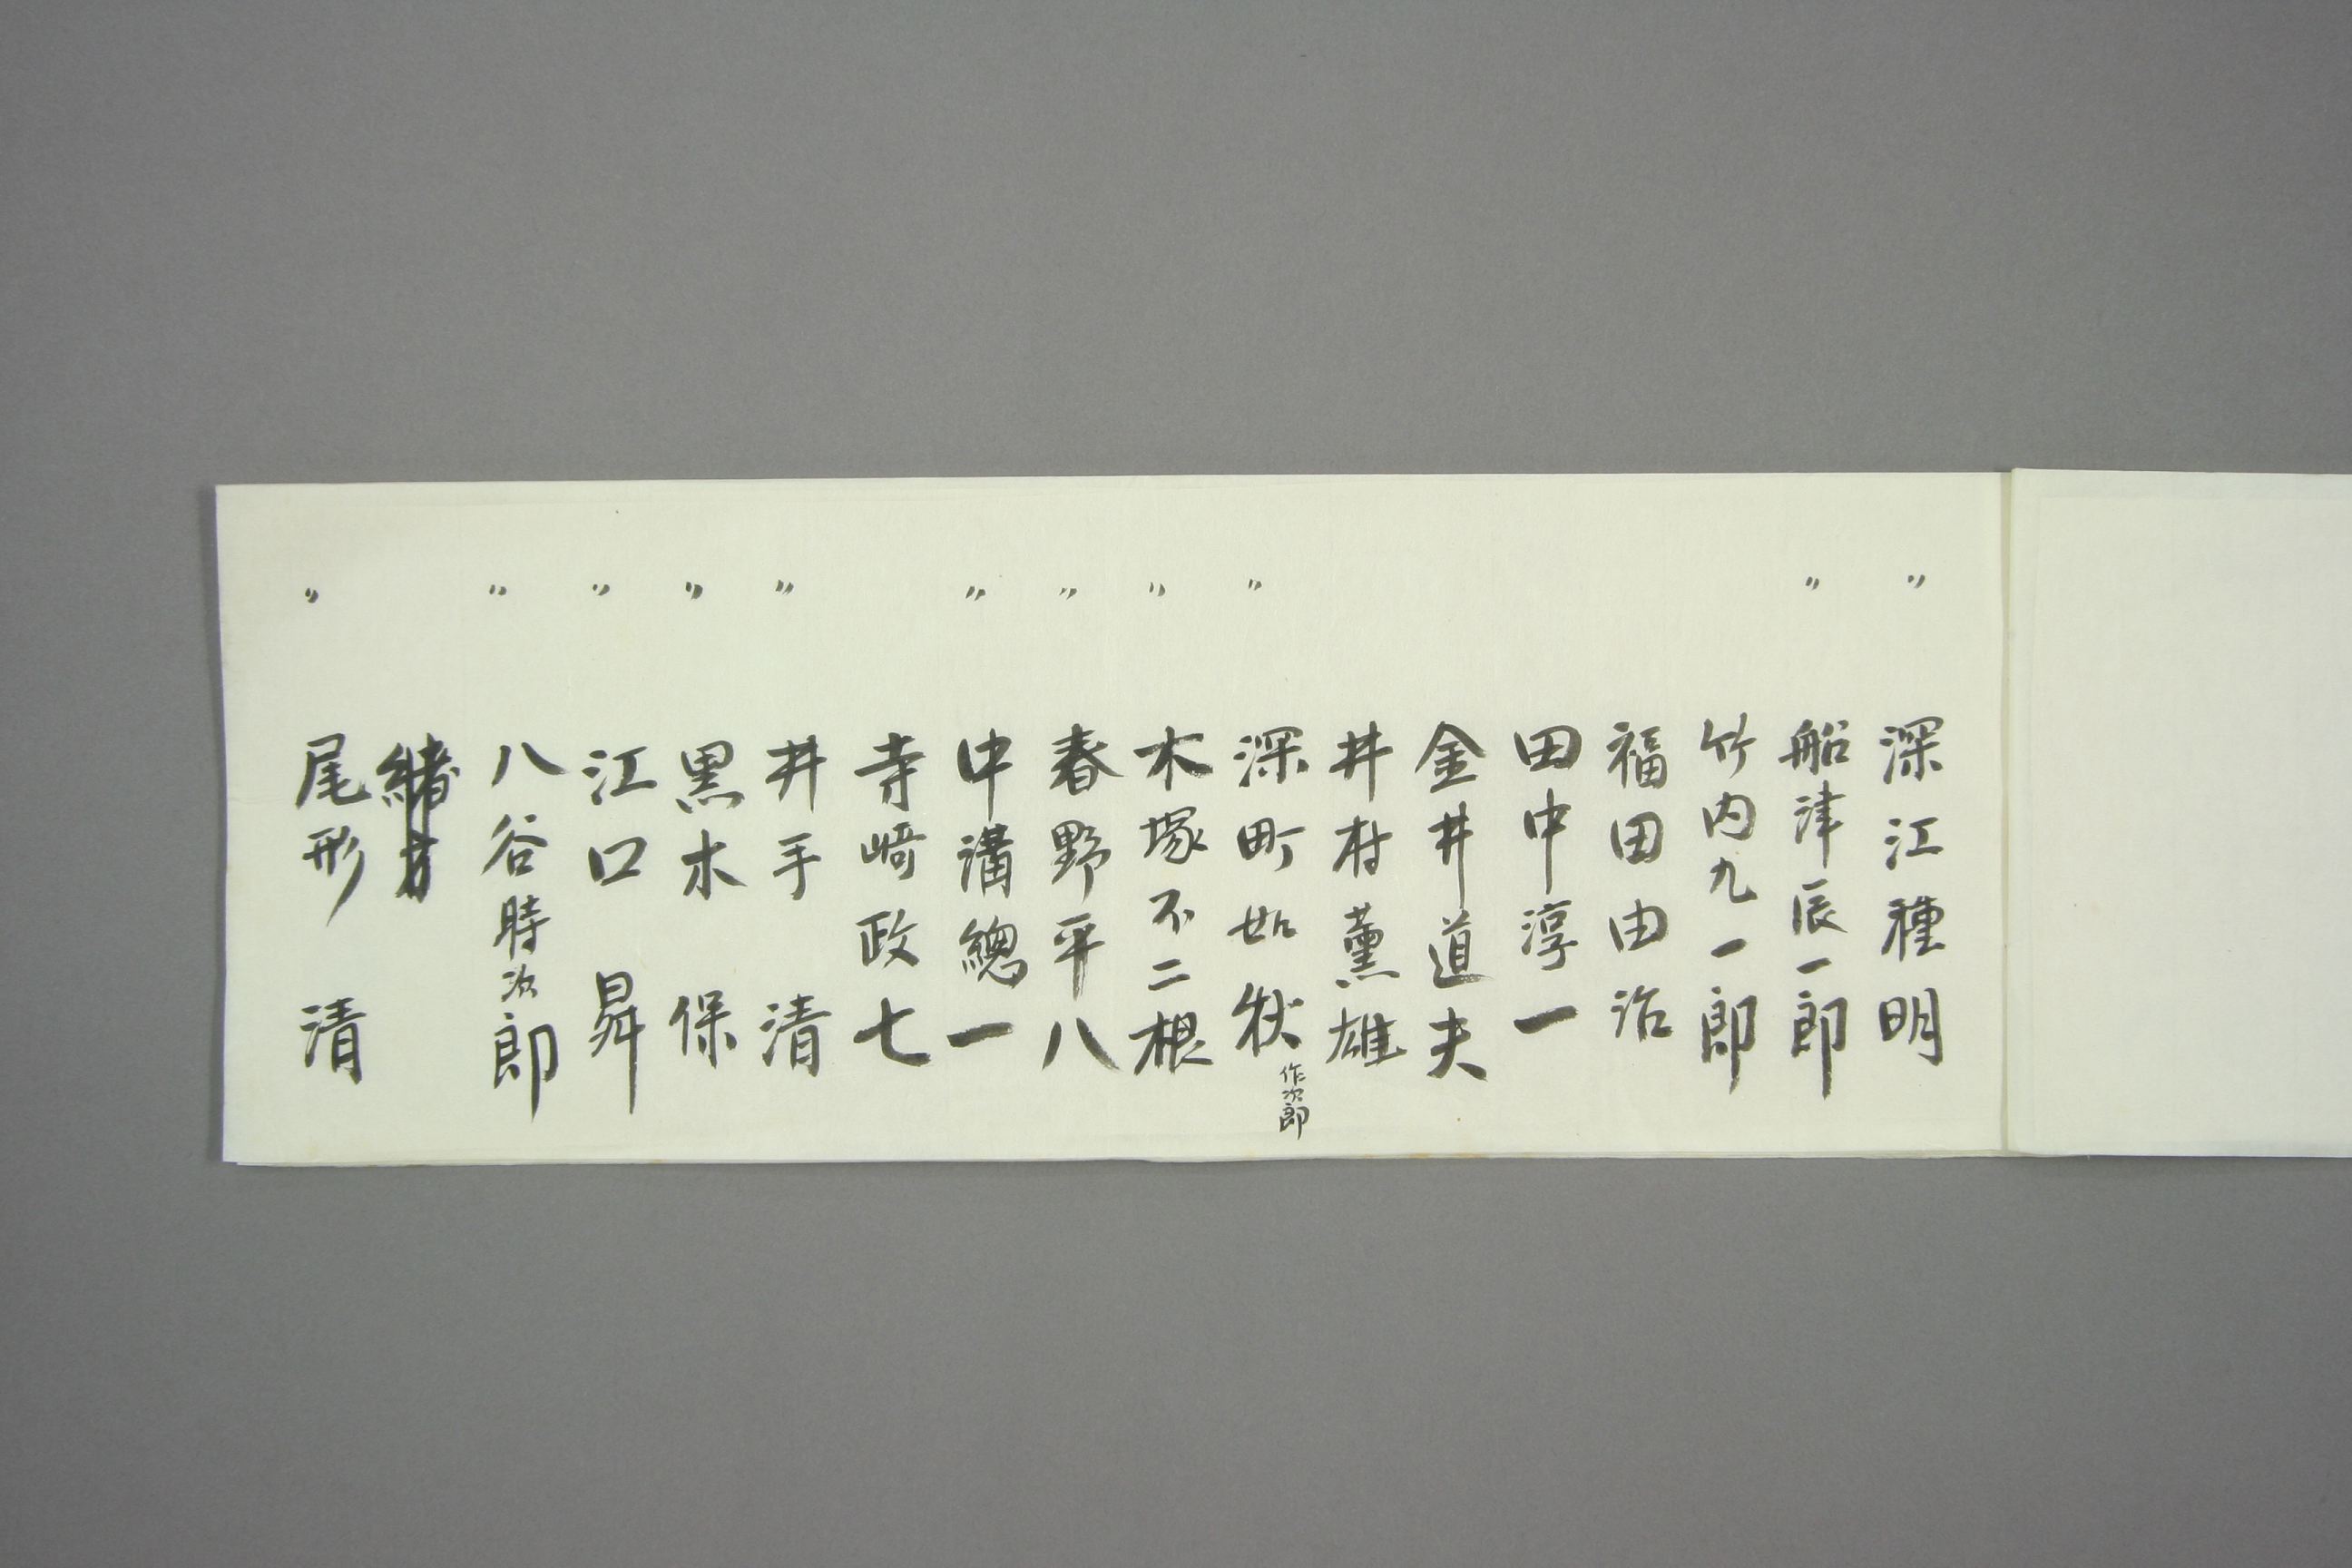 〃 深江種明
〃 船津辰一郎
竹内九一郎
福田由治
田中淳一
金井道夫
井村薫雄
〃 深町如狀 作次郎
〃 木塚不二根
〃 春野平八
〃 中溝總一
寺﨑政七
〃 井手清
〃 黒木保
〃 江口昇
〃 八谷時次郎
緒方
〃 尾形清